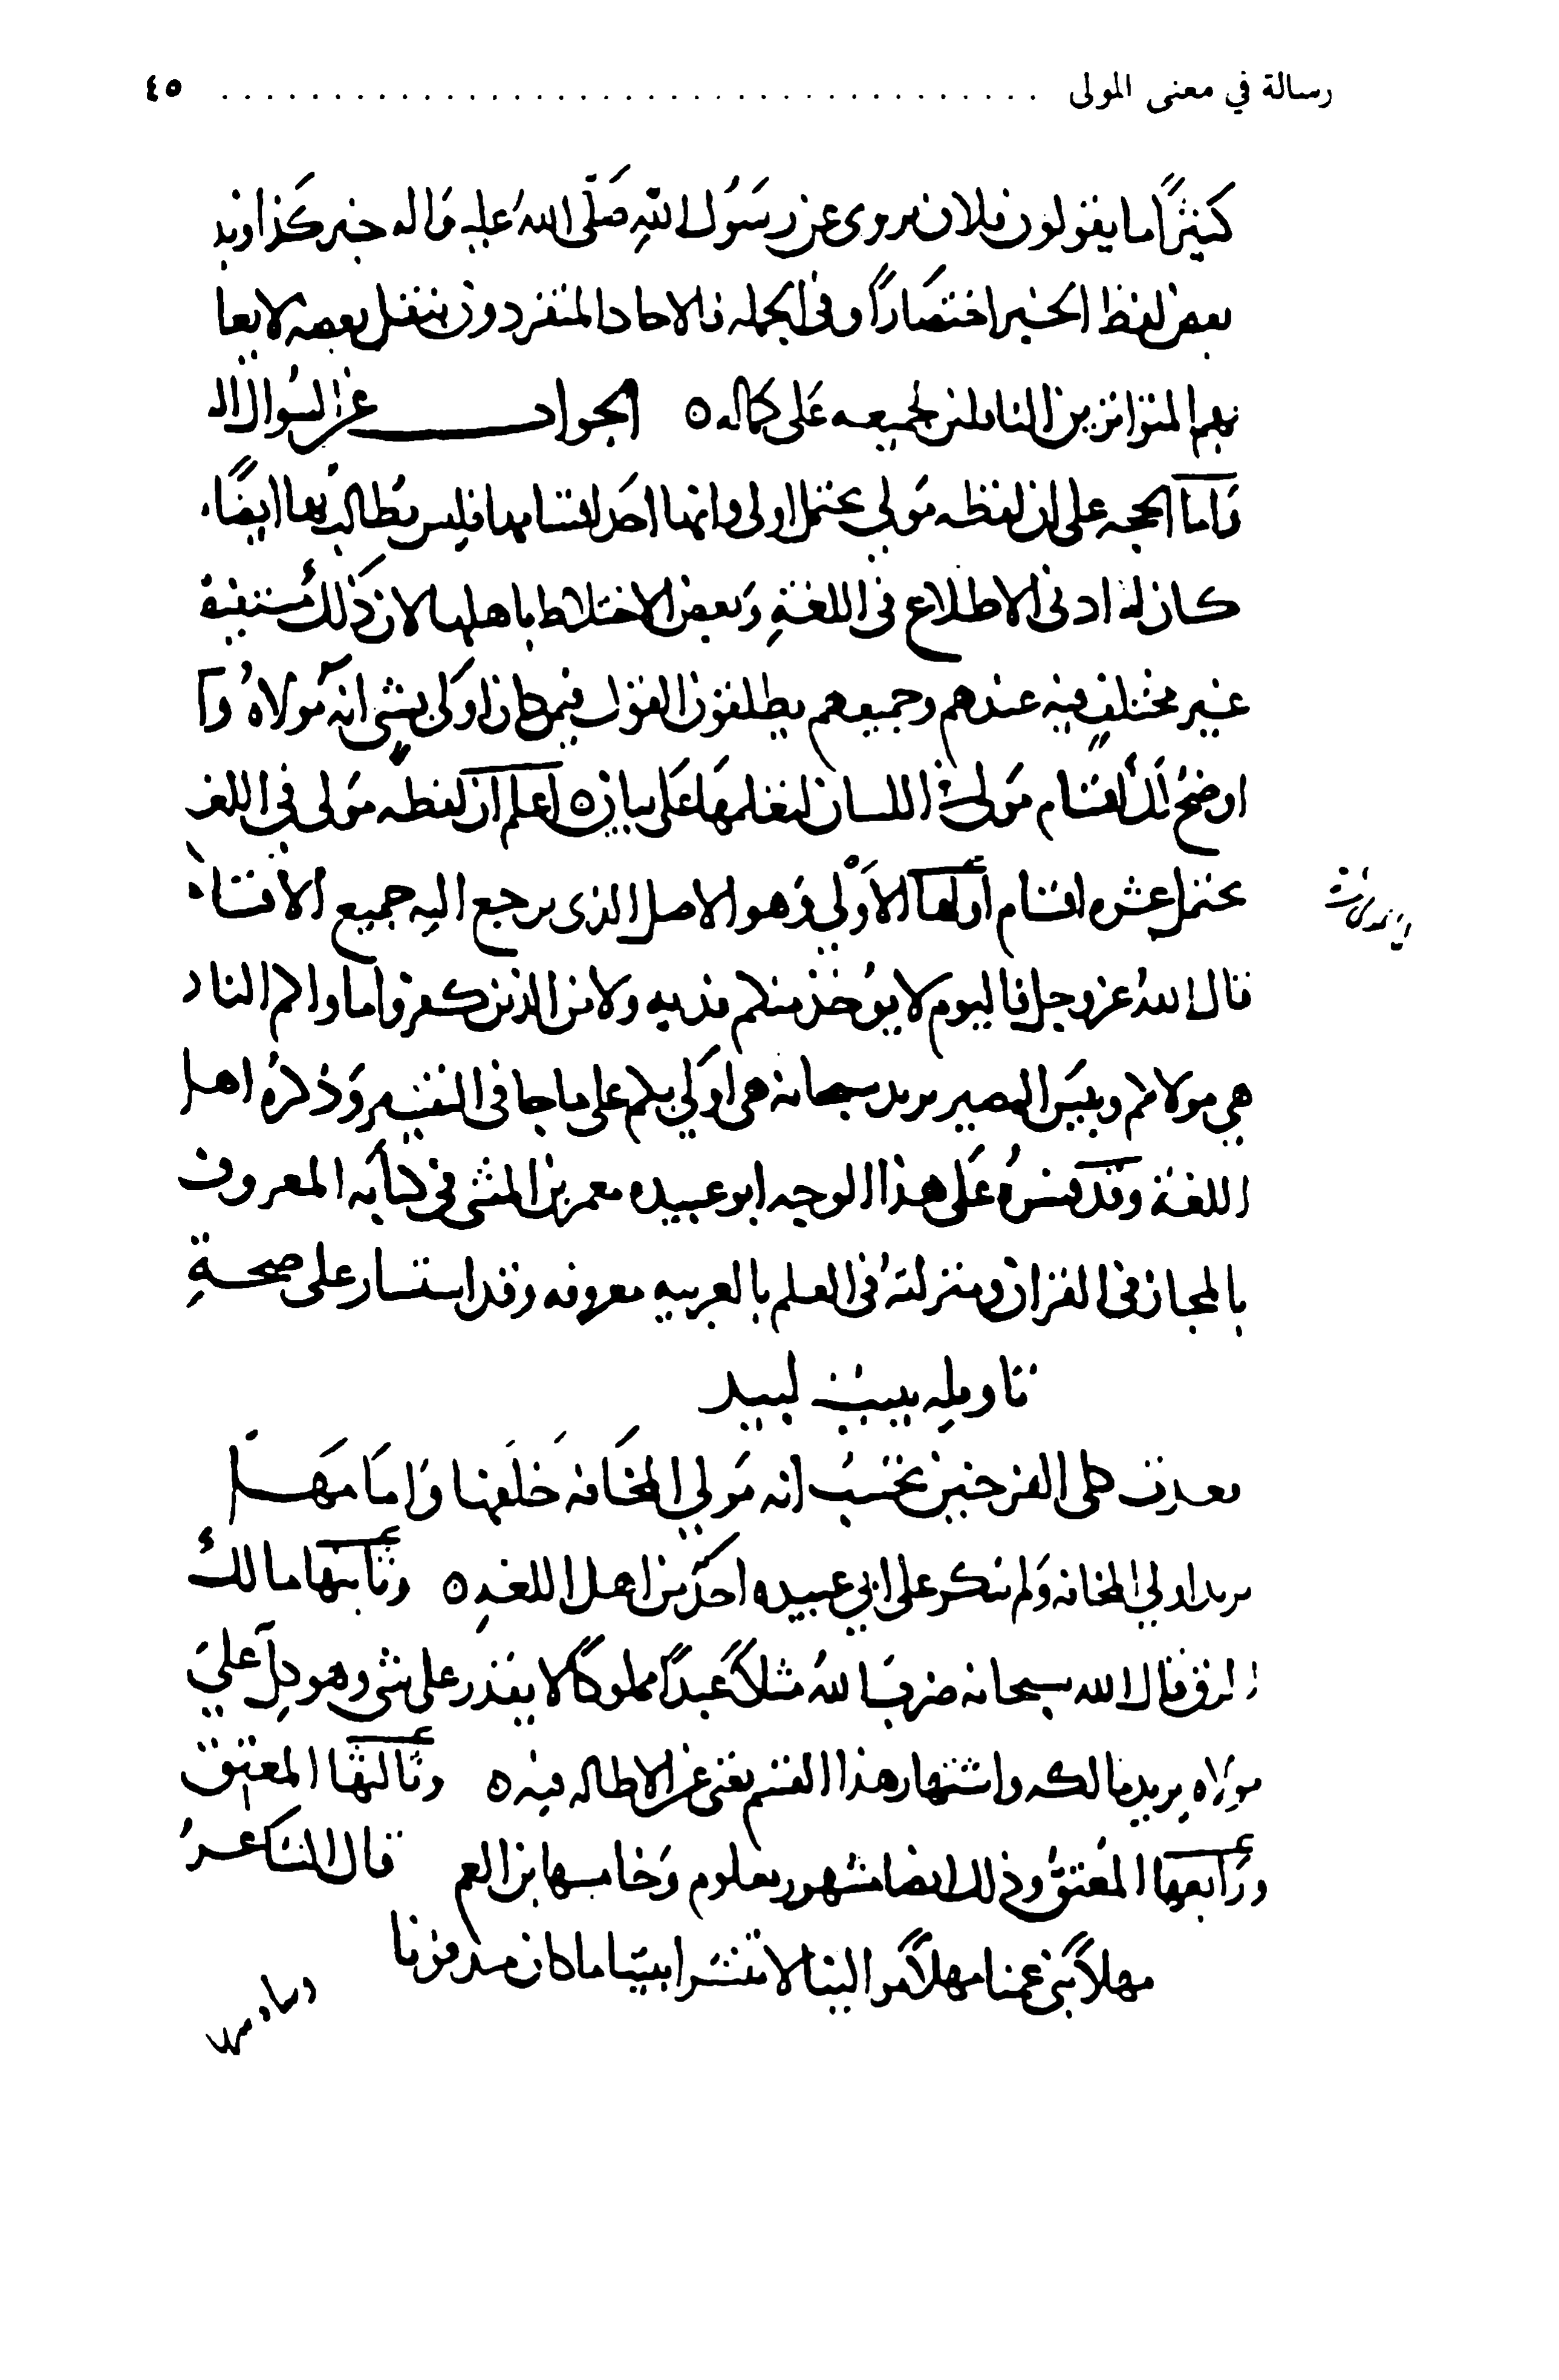 رسالة في معنى المولى ٤٥
كثيرًا ما يقولون فلان يروى عن رسول الله صَلّى الله عليه وَاله خبر كذا ويذ
بعض لفظ الخبر اختصَارًا وفى الجمله فالاحاد المتفردون بنقل بعضه لا يعا
بهم المتواترين الناقلين لجميعه عَلى كماله ٥ الجواب عن السُوال الـ
وَاما الحجه على ان لفظه مَولى تحتمل اولى وانها احَد اقسامها فليس يُطالب بها ايضًا
كان له ادنى الاطلاع فى اللغةِ وَبعض الاختلاط باهلها لان ذَلك مُستفيض
غير مختلفٍ فيه عندهم وجميعهم يطلقون القوَل فيمن كان اوَلى بشى انه مَولاهُ وَا
اوضحُ لك أقسَام مَولى فى اللسان لتعلمهَا عَلى بيان ٥ اعلم ان لفظه مَولى فى اللغـ
تحتمل عشره اقسام أولها الاَوْلى وَهو الاصل الذى يرجع اليه جميع الاقسَام
قال الله عز وجل فاليوم لا يُوخذ منكم فديه ولا من الذين كفروا ماواكم النار
هي مولاكم وبيَس المصير يريد سبحانه هى اوَلى بكم على ما جا فى التفسير وَذكرهُ اهل
اللغة وقد فسرهُ عَلى هذا الوجه ابو عبيده معمر بن المثنى فى كتابه المعروف
بالمجاز فى القران ومنزلتهُ فى العلم بالعربيه معروفه وقد استشار على صحةِ
تاويله ببيت لبيد
فغدت كلى الفرجين تحسَبُ انه مَولي المخَافه خَلفها وَامَامهَا
يريد اولي المخافه وَلم ينكر على ابي عبيده احَدٌ من اهل اللغه ٥ وثَانيهَا مالك
الرق قال الله سبحانه ضربَ اللهُ مثَلاً عَبدًا مملوكًا لا يقدر على شى وهو كلٌ عليَ
مولاه يريد مالكه واشتهار هذا القسم يغنى عن الاطاله فيه ٥ وثالثها المعتِق
ورَابعها المُعتقُ وذلك ايضا مشهور معلوم وَخامسها بن العم قال الشَاعرُ
مهلاً بَنى عمنا مهلاً مَوالينا لا تنشرَا بيننا ما كان مدفونا